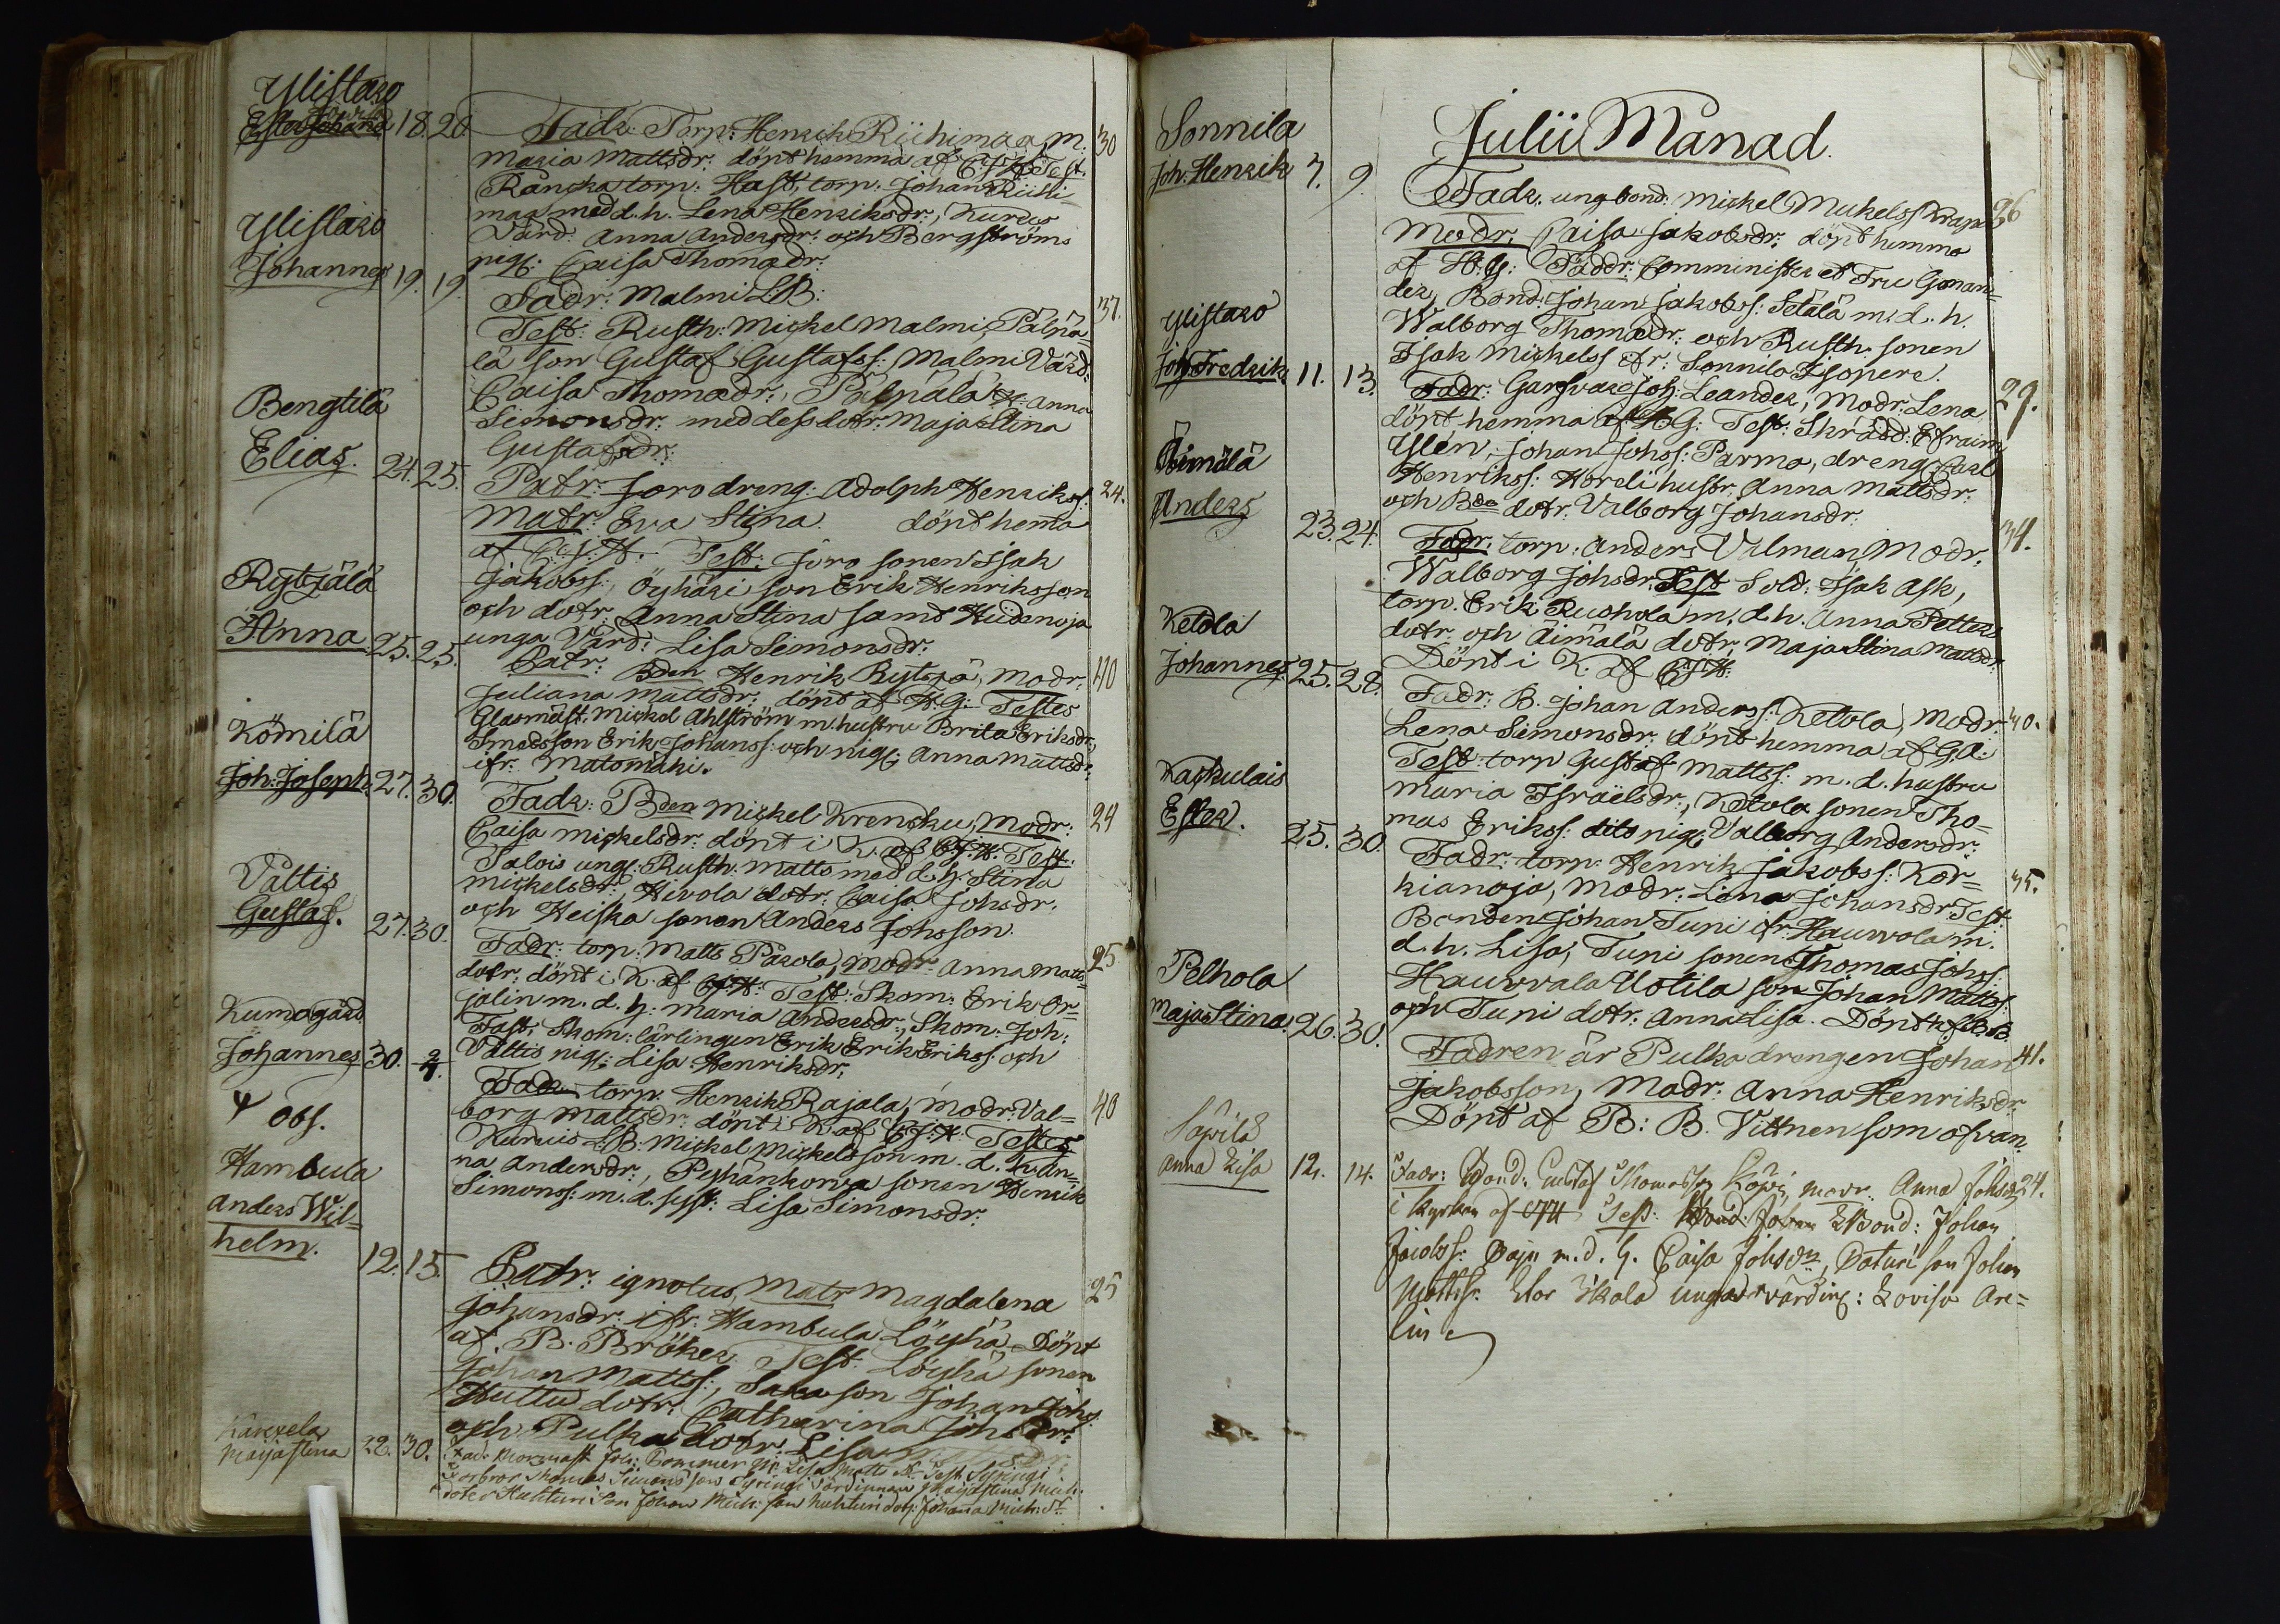 Ylistaro
Ester Johanna 18. 20
Fadr: Torp: Henrik Riihimaa, M. 30
Maria Mattsdr: döpt hemma af CJH. Test.
Rancka torp: Hast, torp. Johan Riihi-
maa med d. h. Lena Henriksdr:, Kurcis
Värd: Anna Andersdr: och Bergströms
pig: Caisa Thomædr:
Ylistaro
Johannes 19. 19.
Fadr: Malmi L: B: 37.
Test: Rusth: Mickel Malmi, Pälnä-
lä son Gustaf Gustafss: Malmi Värd:
Caisa Thomædr:, Pälnälä Anna
Simonsdr: med dess dotr: Maja Stina
Gustafsdr:
Bengtilä
Elias. 24. 25.
Patr: Joro dreng: Adolph Henrikss: 24.
Matr: Eva Stina. döpt hema
af C. J. H. Test: Joro sonen Isak
Jakobss:, Öyhäri son Erik Henriksson
och dotr: Anna Stina samt Heidenoja
unga Värd: Lisa Simonsdr:
Rytzälä
Anna 25. 25.
Patr: Bden Henrik Rytzä, Modr: 40
Juliana Mattsdr: döpt af H. G: Testes
Glasmäst. Mickel Ahlström m. hustru Brita Eriksdr:,
Smedsson Erik Johanss: och pig: Anna Mattsdr:
ifr: Matomäki.
Kömilä
Joh: Joseph. 27. 30.
Fadr: Bden Mickel Krensku, Modr: 24
Caisa Mickelsdr: döpt i K. af CJ. H. Test.
Talois ung: Rusth: Matts med d. h. Stina
Mickelsdr:, Hivola dotr: Caisa Johsdr:
och Heiska sonen Anders Johsson.
Vältis
Gustaf. 27. 30.
Fadr: torp: Matts Pärola, Modr: Anna Matts- 25
dotr: döpt i K. af CJ. H: Test: Skom: Erik Or-
jalin m. d. h: Maria Andersdr:, Skom: Joh:
Fast: Skom: lärlingen Erik Erikss: och
Vältis pig: Lisa Henriksdr:
Kumogård
Johannes 30. 2/7.
Fadr: torp: Henrik Rajala, Modr: Val- 40
borg Mattsdr: döpt i K. af CJ. H. Testes
Kurvis LB. Mickel Mickelsson m. d. h. An-
na Andersdr:, Peyhänkorva sonen Henrik
Simonss: m. d. syst: Lisa Simonsdr:
obs.
Hambula
Anders Wil-
helm. 12. 15.
Patr: ignotus, Matr Magdalena 25
Johansdr: ifr: Hambula Löyhä. Döpt
af B. Bröker. Test: Löyhä sonen
Johan Mattss:, son Johan Johs:
Huttu dotr: Catharina Johsdr:
och Pulka dotr: Lisa
Karxela
Majastina 22. 30.
Fad: Joh: Brommer M: Lisa Matts dr. Test. Syringi
Torbror Thomas Simons son Syringi Värdinnan Majastina Mich:
doter Huhturi Son Johan Mich: son Huhturi dotr: Johanna Mich: dr.
Julii Månad.
Sonnila
Joh: Henrik 7. 9.
Fadr: ung bond: Mickel Mickelss 26
Modr: Caisa Jakobsdr: döpt hemma
af H. G: Faddr: Comminister et Fru Gonan-
der, Bond: Johan Jakobss: Setälä m. d. h.
Walborg Thomædr: och Rusth: sonen
Isak Mickelss ifr: Sonnila Isopere.
Ylistaro
Joh: Fredrik 11. 13.
Fadr: Garfvare Joh: Leander, Modr: Lena 29.
döpt hemma af H. G: Test: Skrädd: Efraim
Ylén, Johan Johss: Parma, dreng Carl
Henrikss: Horeli hustr: Anna Mattsdr:
och Bda dotr: Valborg Johansdr:
Äimälä
Anders 23. 24.
Fadr: torp: Anders Vilman, Modr: 34.
Walborg Johsdr: Test Sold: Isak Ask,
torp. Erik Ruohola m. d. h. Anna Petters
dotr: och Äimälä dotr: Maja Stina Mattsdr:
Döpt i K. af CJH:
Ketola
Johannes 25. 28.
Fadr: B. Johan Anderss: Ketola, Modr: 40.
Lena Simonsdr: döpt hemma af G. A:
Test: torp Gustaf Mattss: m. d. hustru
Maria Israëlsdr:, Ketola sonen Tho-
mas Erikss: dito pig: Valborg Andersdr:
Kaskulais
Ester. 25. 30.
Fadr: torp: Henrik Jakobss: Kor- 35.
kianoja, Modr: Lena Johansdr: Test:
Bonden Johan Tuni ifr: Hauvola m.
d. h. Lisa, Tuni sonen Thomas Johss:
Hauvvala Uotila son Johan Mattss:
och Tuni dotr: Anna Lisa. Döpt af B. B.
Pelhola
Maja Stina 26. 30.
Fadren är Pulka drengen Johan 41.
Jakobsson, Modr: Anna Henriksdr:
Döpt af B: B. Vittnen som ofvan
Säpilä
Anna Lisa 12. 14.
Fadr: Bond: Gustaf Thomasson Köpi, modr: Anna Johsdr 24.
i kyrkan af CJH Test: Bond: Johan
Jacobss: Paju m. d. h. Caisa Johsdr, Daturi son Johan
Mattss. Stor Skala unga värdin: Lovisa Are-
lin